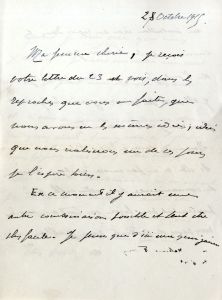 28 Octobre 1915
Ma pauvre chérie, je reçois
votre lettre du 23 et vois, dans les
reproches que vous me faites, que
nous avons eu les mêmes idées, idées
que nous réaliserons un de ces jours
je l'espère bien.
En ce moment il y aurait une
autre combinaison possible et tout de
suite. Je pense que d'ici